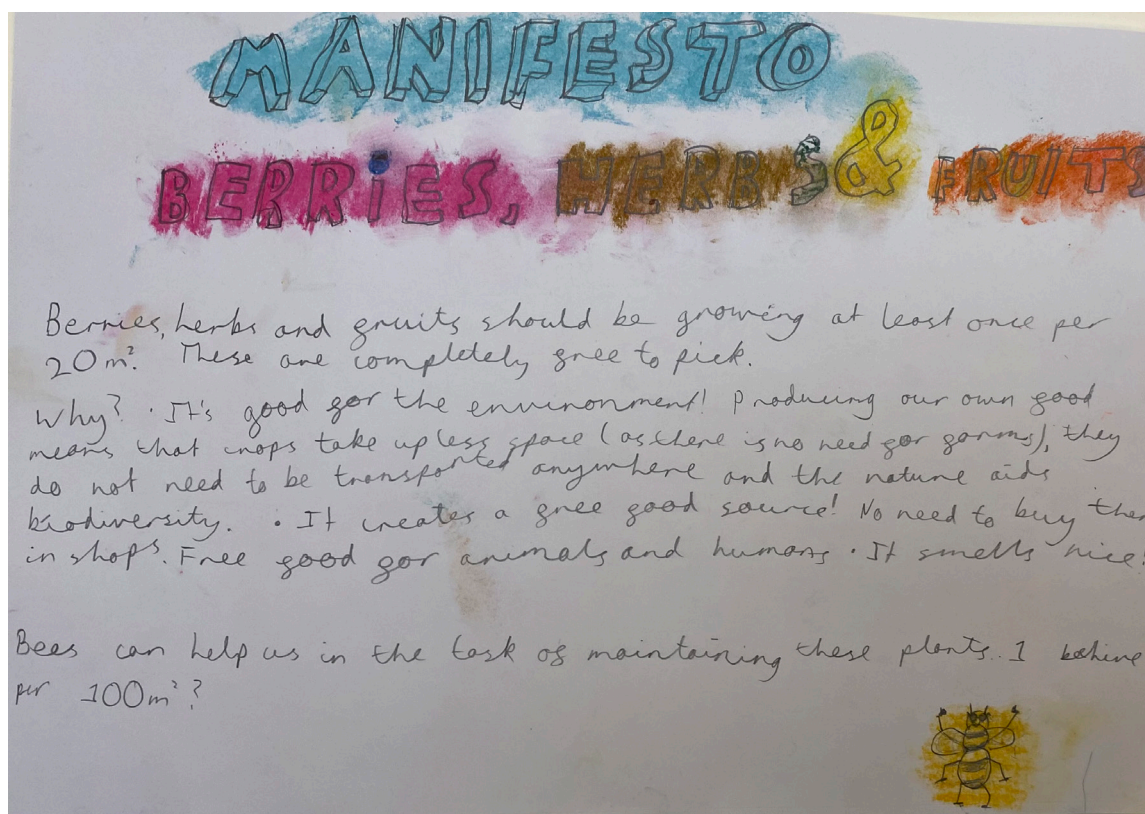 MANIFESTO
BERRiES, HERBS & FRUITS
Berries, herbs and fruits should be growing at least once per
20m². These are completely free to pick.
Why? · It's good for the environment! Producing our own food
means that crops take up less space (as there is no need for farms), they
do not need to be transported anywhere and the nature aids
biodiversity. · It creates a free food source! No need to buy them
in shops. Free food for animals and humans · It smells nice!
Bees can help us in the task of maintaining these plants. 1 behive
per 100m²?